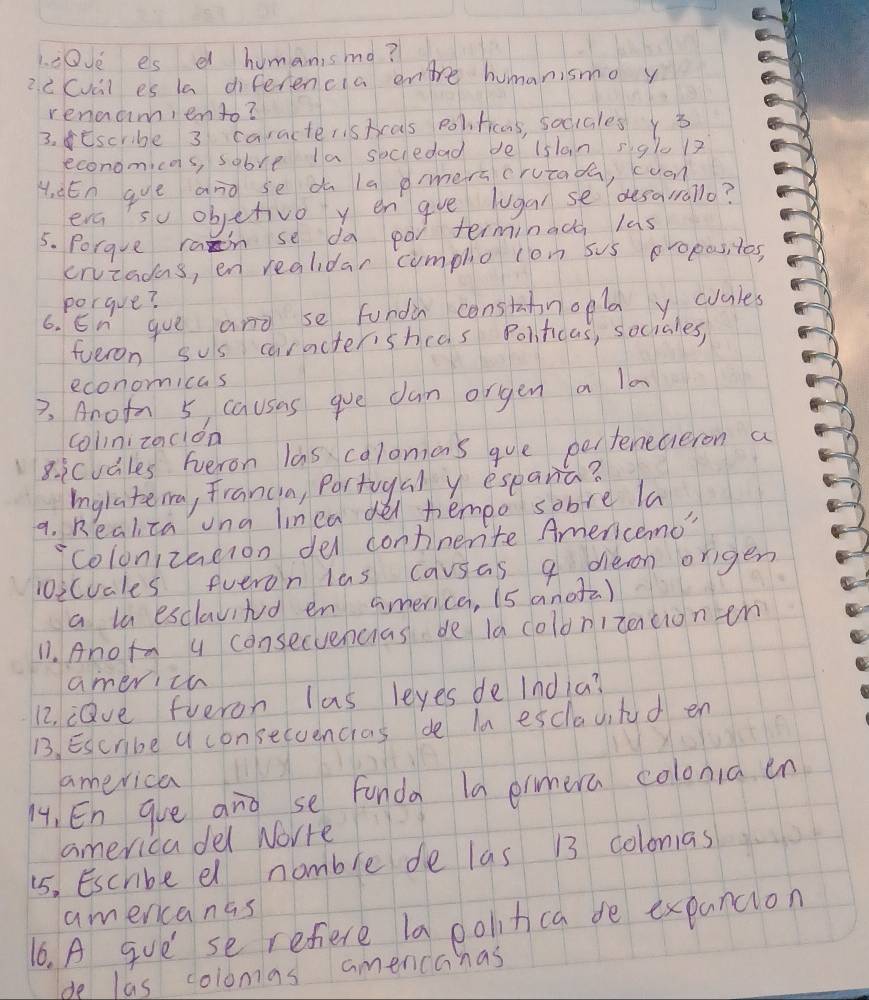 1.¿Qué es el humanismo?
2.¿Cuál es la diferencia entre humanismo y
renacimiento?
3. Escribe 3 caracteristicas politicas, sociales y 3
economicas, sobre la sociedad de Islan siglo 17
4.¿En que año se da la primera cruzada, cual
era su objetivo y en que lugar se desarrollo?
5. Porque razón se da por terminada las
cruzadas, en realidar cumplio con sus propositos,
porque?
6. En que año se funda constatinopla y cuales
fueron sus caracteristicas Politicas, sociales,
economicas
7. Anota 5, causas que dan origen a la
colinización
8.¿cuáles fueron las colonias que pertenecieron a
Inglaterra, Francia, Portugal y españa?
9. Realiza una linea del tiempo sobre la
"Colonizacion del continente Americano"
10¿Cuales fueron las causas q dieron origen
a la esclavitud en america, (5 anota)
11. Anota 4 consecuencias de la colonizacion en
america
12. ¿Que fueron las leyes de India?
13. Escribe 4 consecuencias de la esclavitud en
america
14, En que año se funda la primera colonia en
america del Norte
15. Escribe el nombre de las 13 colonias
americanas
16. A qué se refiere la politica de expancion
de las colonias americanas